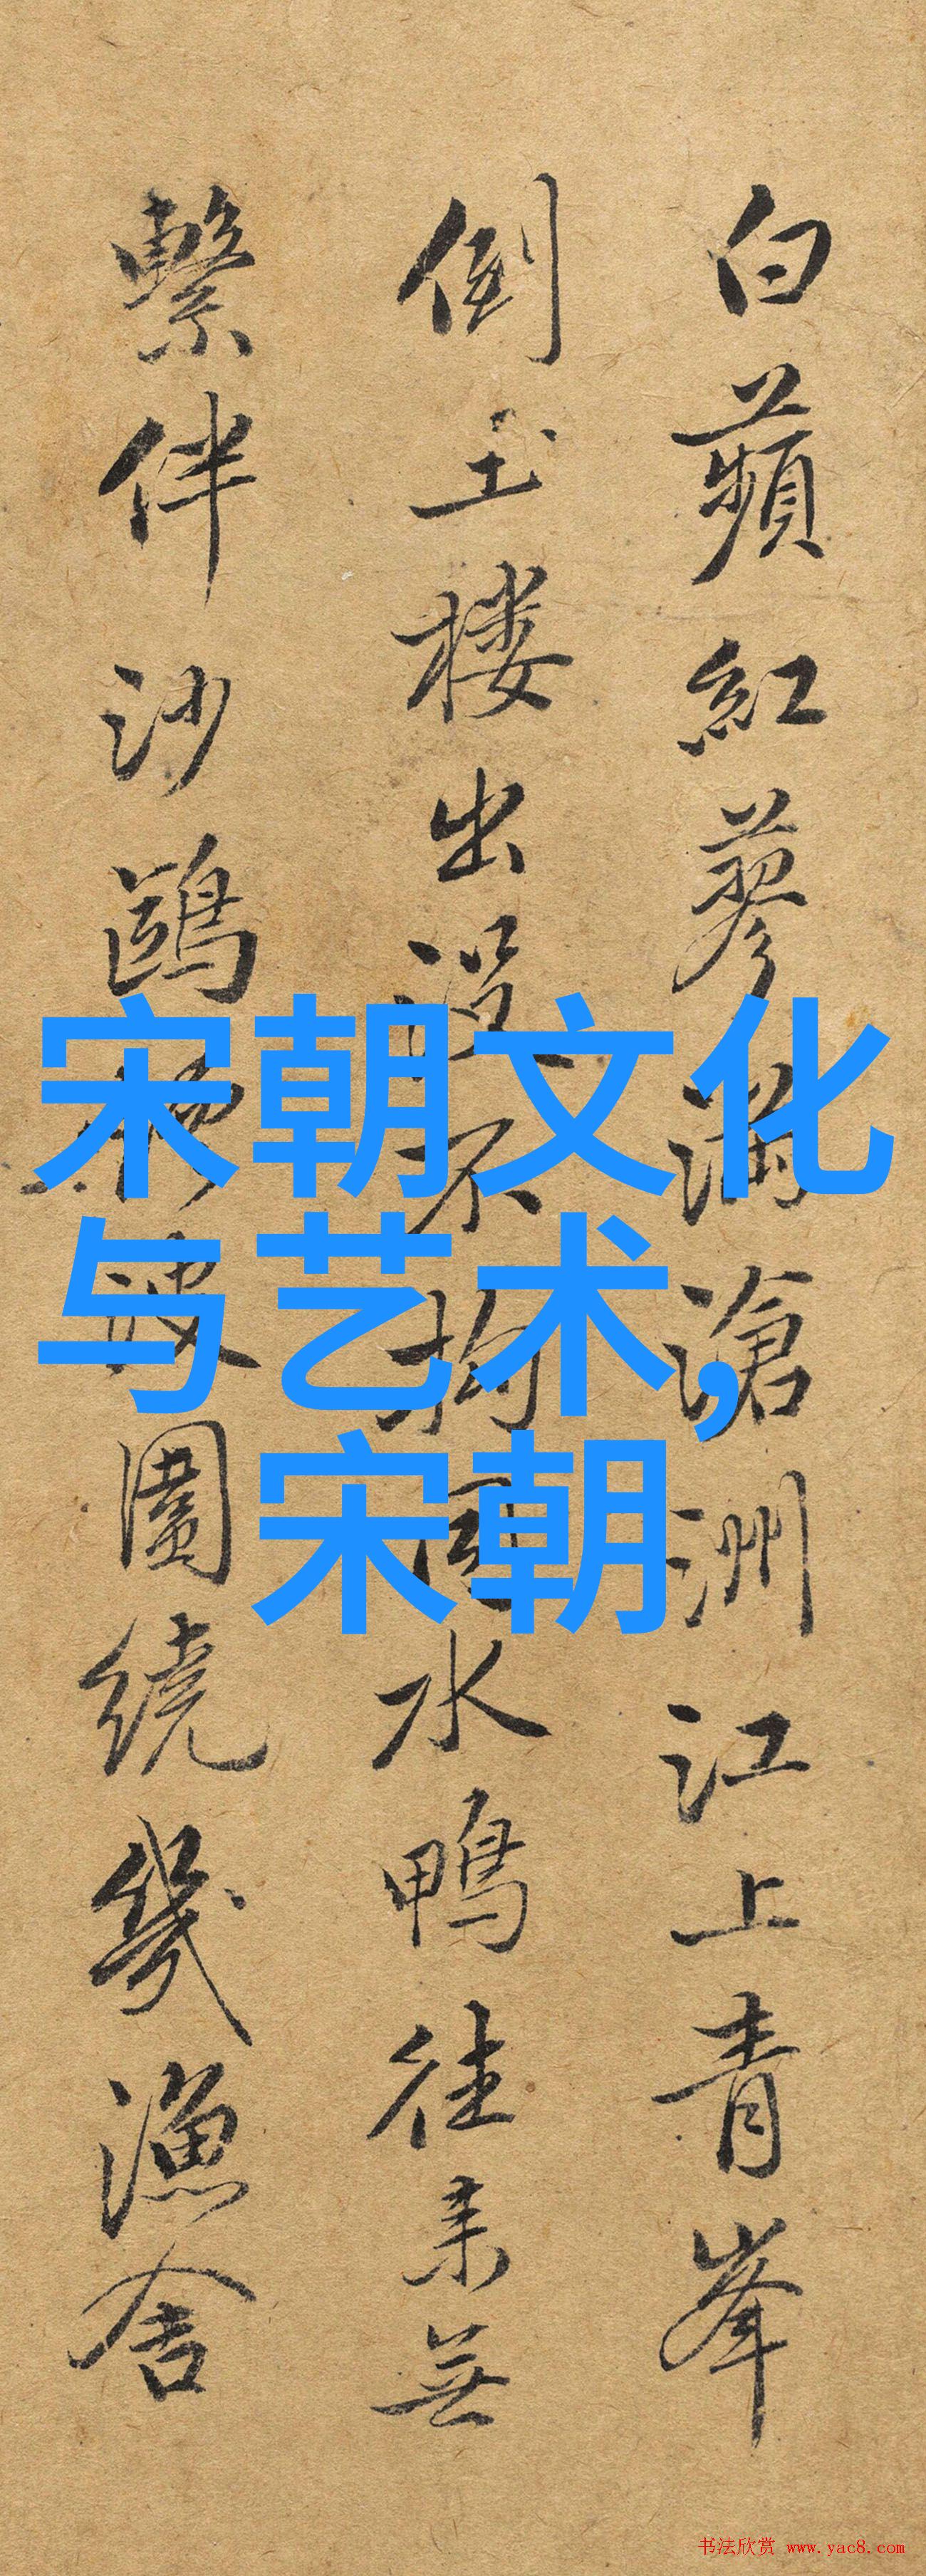 白蘋紅蓼滿滄洲江上青峯
倒玉楼出沒不拘同水鴨往来無
繫伴沙鷗波圍繞幾漁舍
宋朝文化
与艺术,
宋朝
书法欣赏 www.yac8.com